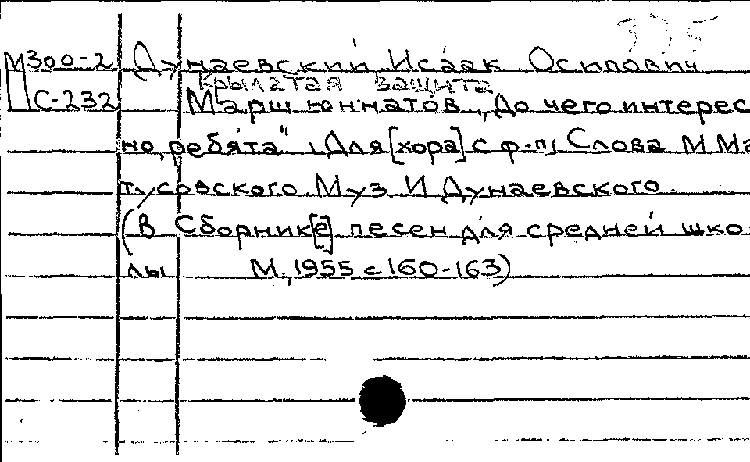 335
М300-2 Дунаевский Исаак Осипович
Крылатая защита
С-232 Марш юннатов „До чего интерес
но, ребята" „Для [хора] с ф-п, Слова М Ма
тусовского Муз И Дунаевского.
(В Сборник[е] песен для средней шко
лы М, 1955 с 160-163)